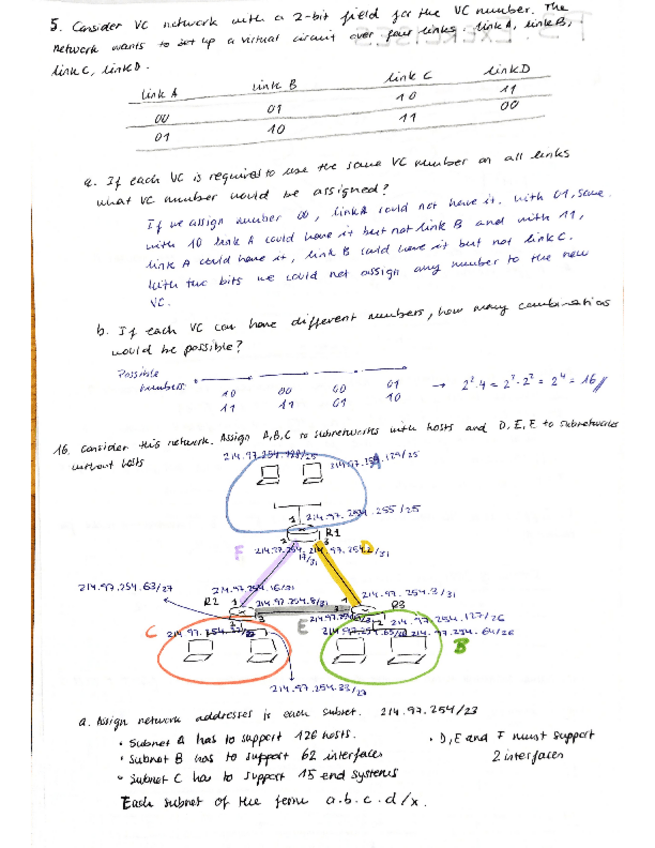 5. Consider VC network with a 2-bit field for the VC number. The
network wants to set up a virtual circuit over four links. link A, link B,
link C, link D.
link A link B link C link D
00 01 10 11
01 10 11 00
a. If each VC is required to use the same VC number on all links
what VC number would be assigned?
If we assign number 00, link A could not have it. with 01, same.
with 10 link A could have it but not link B and with 11,
link A could have it, link B could have it but not link C.
With two bits we could not assign any number to the new
VC.
b. If each VC can have different numbers, how many combinations
would be possible?
Possible
numbers:
10 00 00 01
11 11 01 10
→ 2².4 = 2².2² = 2⁴ = 16 //
16. Consider this network. Assign A,B,C to subnetworks with hosts and D, E, F to subnetworks
without hosts
214.97.254.128/25
214.97.254.129/25
A
1 214.97.254.255/25
R1
2 3
F D
214.97.254.17/31
214.97.254.2/31
214.97.254.63/27
214.97.254.16/31
214.97.254.3/31
R2 1 214.97.254.8/31
R3
E
214.97.254.127/26
C
214.97.254.65/26
214.97.254.64/26
B
214.97.254.33/27
a. Assign network addresses to each subnet. 214.97.254/23
• Subnet A has to support 126 hosts.
• D, E and F must support
• Subnet B has to support 62 interfaces
2 interfaces
• Subnet C has to support 15 end systems
Each subnet of the form a.b.c.d/x.